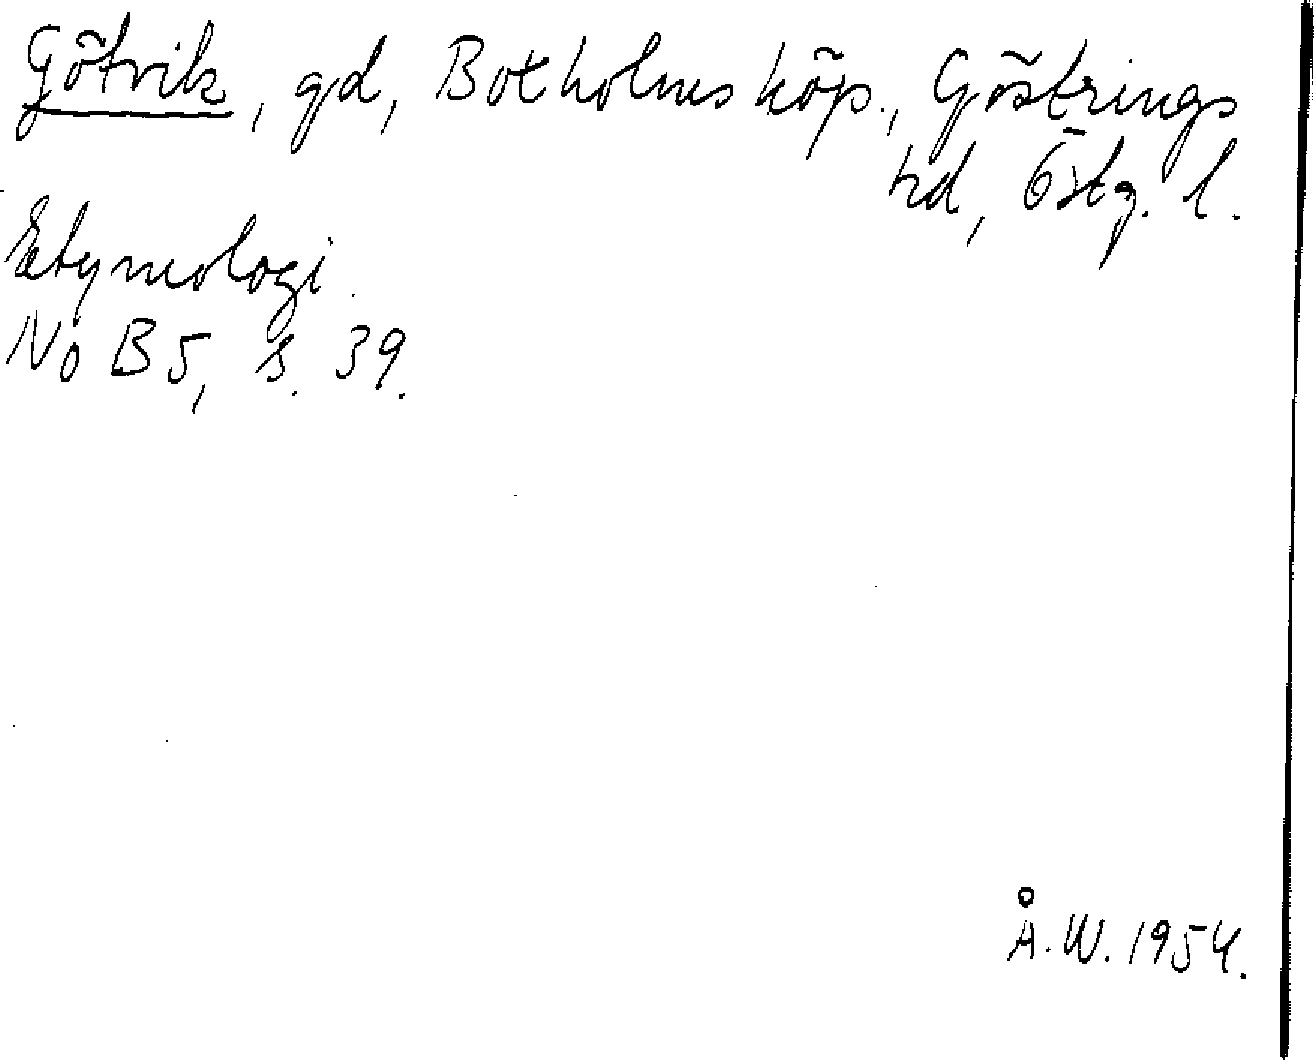 Götvik, gd, Botholms köp., Göstrings
hd, Östg. l.
Etymologi.
No B 5, s. 39.
Å.W. 1954.